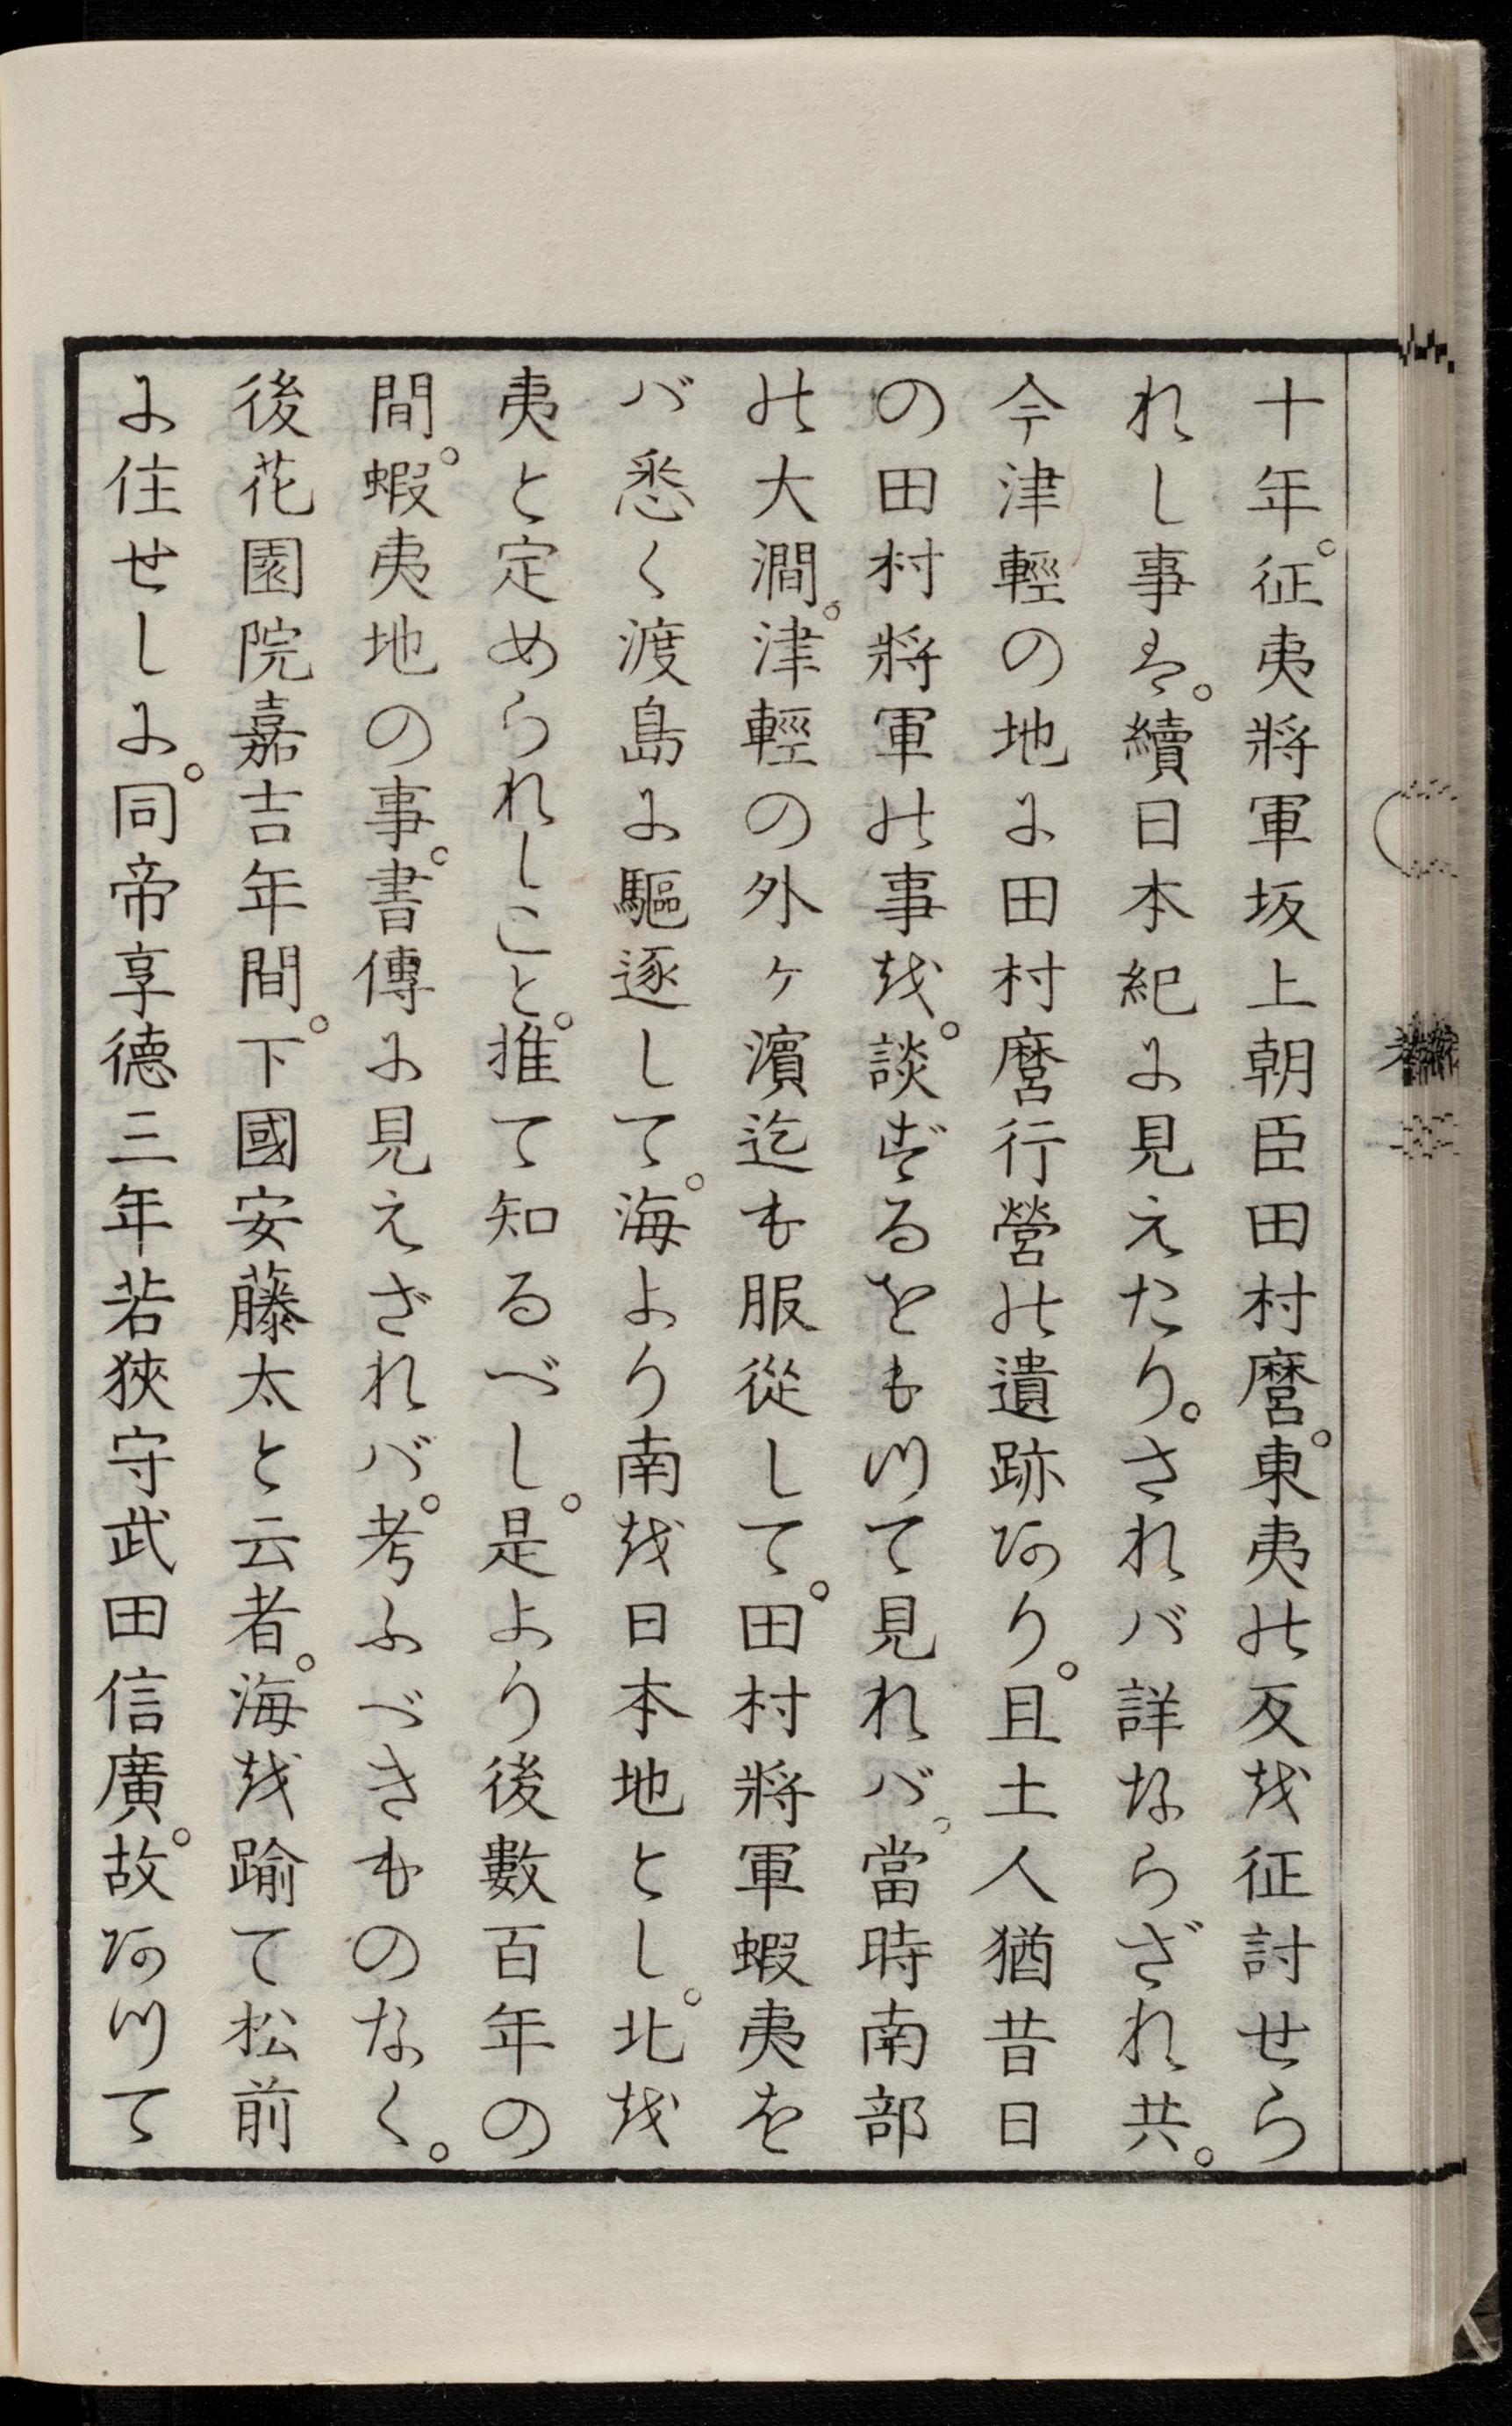 十年。征夷將軍坂上朝臣田村麿。東夷の反を征討せら
れし事は。續日本紀に見えたり。されバ詳ならざれ共。
今津輕の地に田村麿行營の遺跡あり。且土人猶昔日
の田村將軍の事を。談ずるをもつて見れバ。當時南部
の大澗。津輕の外ヶ濱迄も服從して。田村將軍蝦夷を
バ悉く渡島に驅逐して。海より南を日本地とし。北を
夷と定められしこと。推て知るべし。是より後數百年の
間。蝦夷地の事。書傳に見えざれバ。考ふべきものなく。
後花園院嘉吉年間。下國安藤太と云者。海を踰て松前
に住せしに。同帝享德三年若狹守武田信廣。故あつて